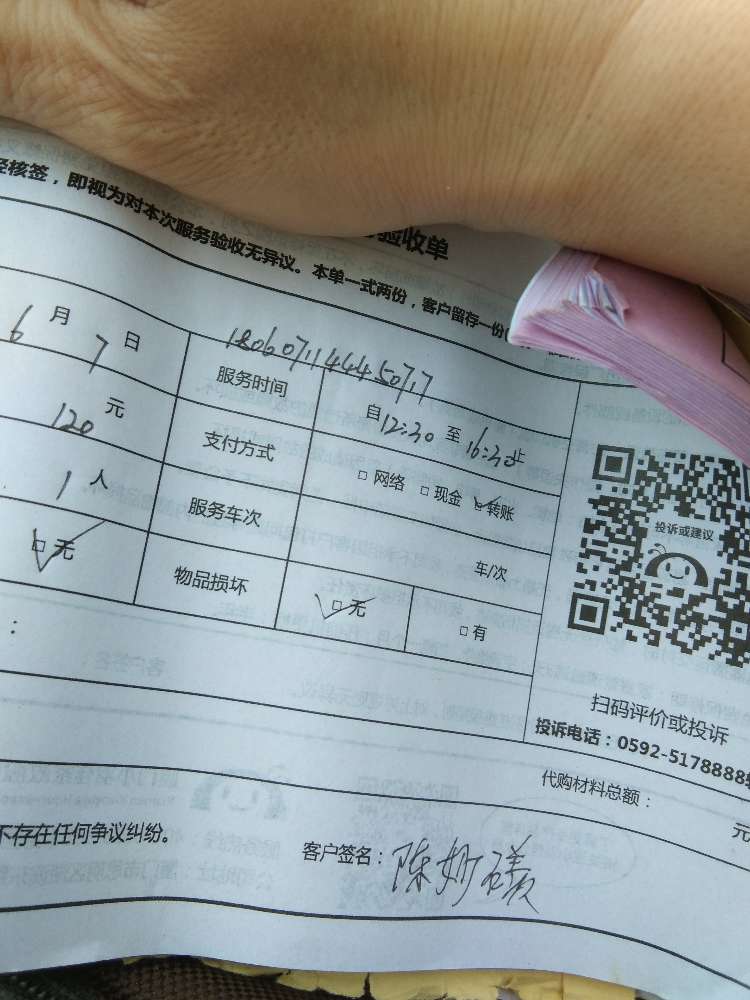 验收单
经核签，即视为对本次服务验收无异议。本单一式两份，客户留存一份
6月7日
服务时间
自12:30至16:30止
120元
支付方式
□网络 □现金 ☑转账
1人
服务车次
车/次
☑无
物品损坏
☑无
□有
：
投诉或建议
扫码评价或投诉
投诉电话：0592-5178888转
代购材料总额： 元
不存在任何争议纠纷。
客户签名：陈